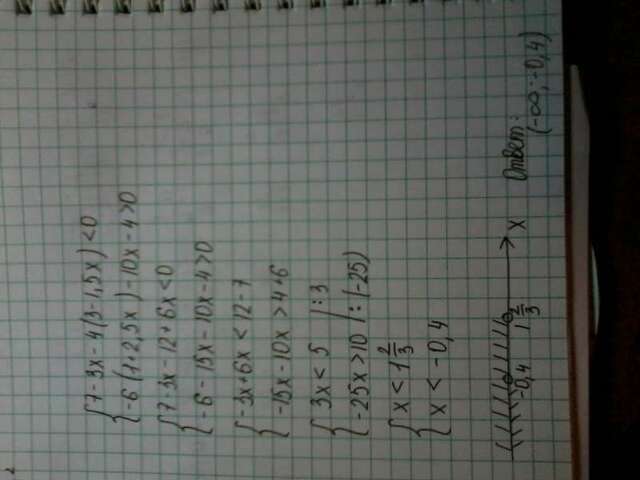 {7-3x-4(3-1,5x)<0
{-6(1+2,5x)-10x-4>0
{7-3x-12+6x<0
{-6-15x-10x-4>0
{-3x+6x<12-7
{-15x-10x>4+6
{3x<5 |:3
{-25x>10 |:(-25)
{x<1 2/3
{x<-0,4
-0,4 1 2/3 x
Ответ:
(-∞;-0,4)